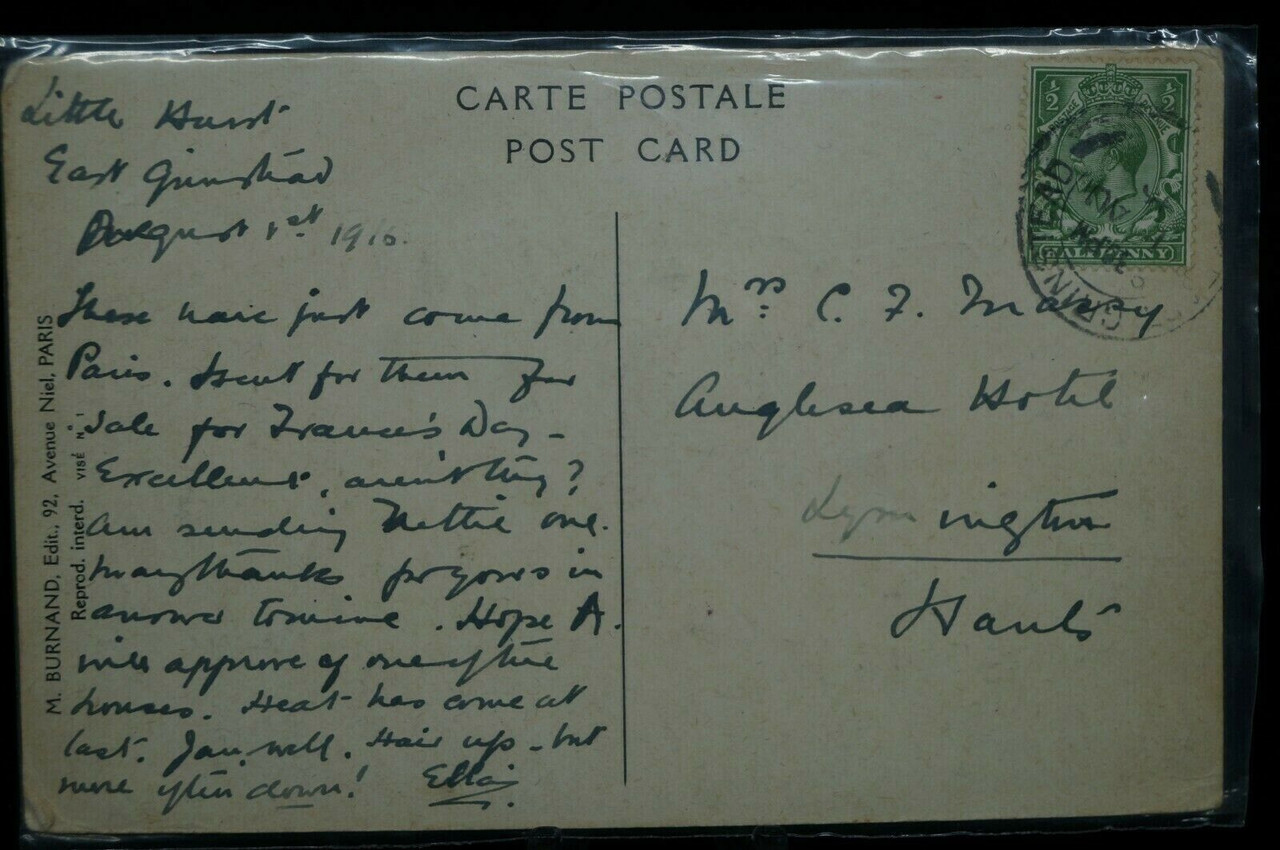 CARTE POSTALE
POST CARD
Little Hurst
East Grinstead
August 1st 1916.
These have just come from
Paris. I sent for them for
sale for France's Day -
Excellent, aren't they?
Am sending Nettie one.
Many thanks for yours in
answer to mine. Hope A.
will approve of one of the
houses. Heat has come at
last. Jan well. Hair up - but
more often down!
M. BURNAND, Edit., 92, Avenue Niel, PARIS
Reprod. interd. VISÉ N° 1
½ ½
HALFPENNY
GRINSTEAD
Mrs. C. F.
Anglesea Hotel
Lymington
Hants